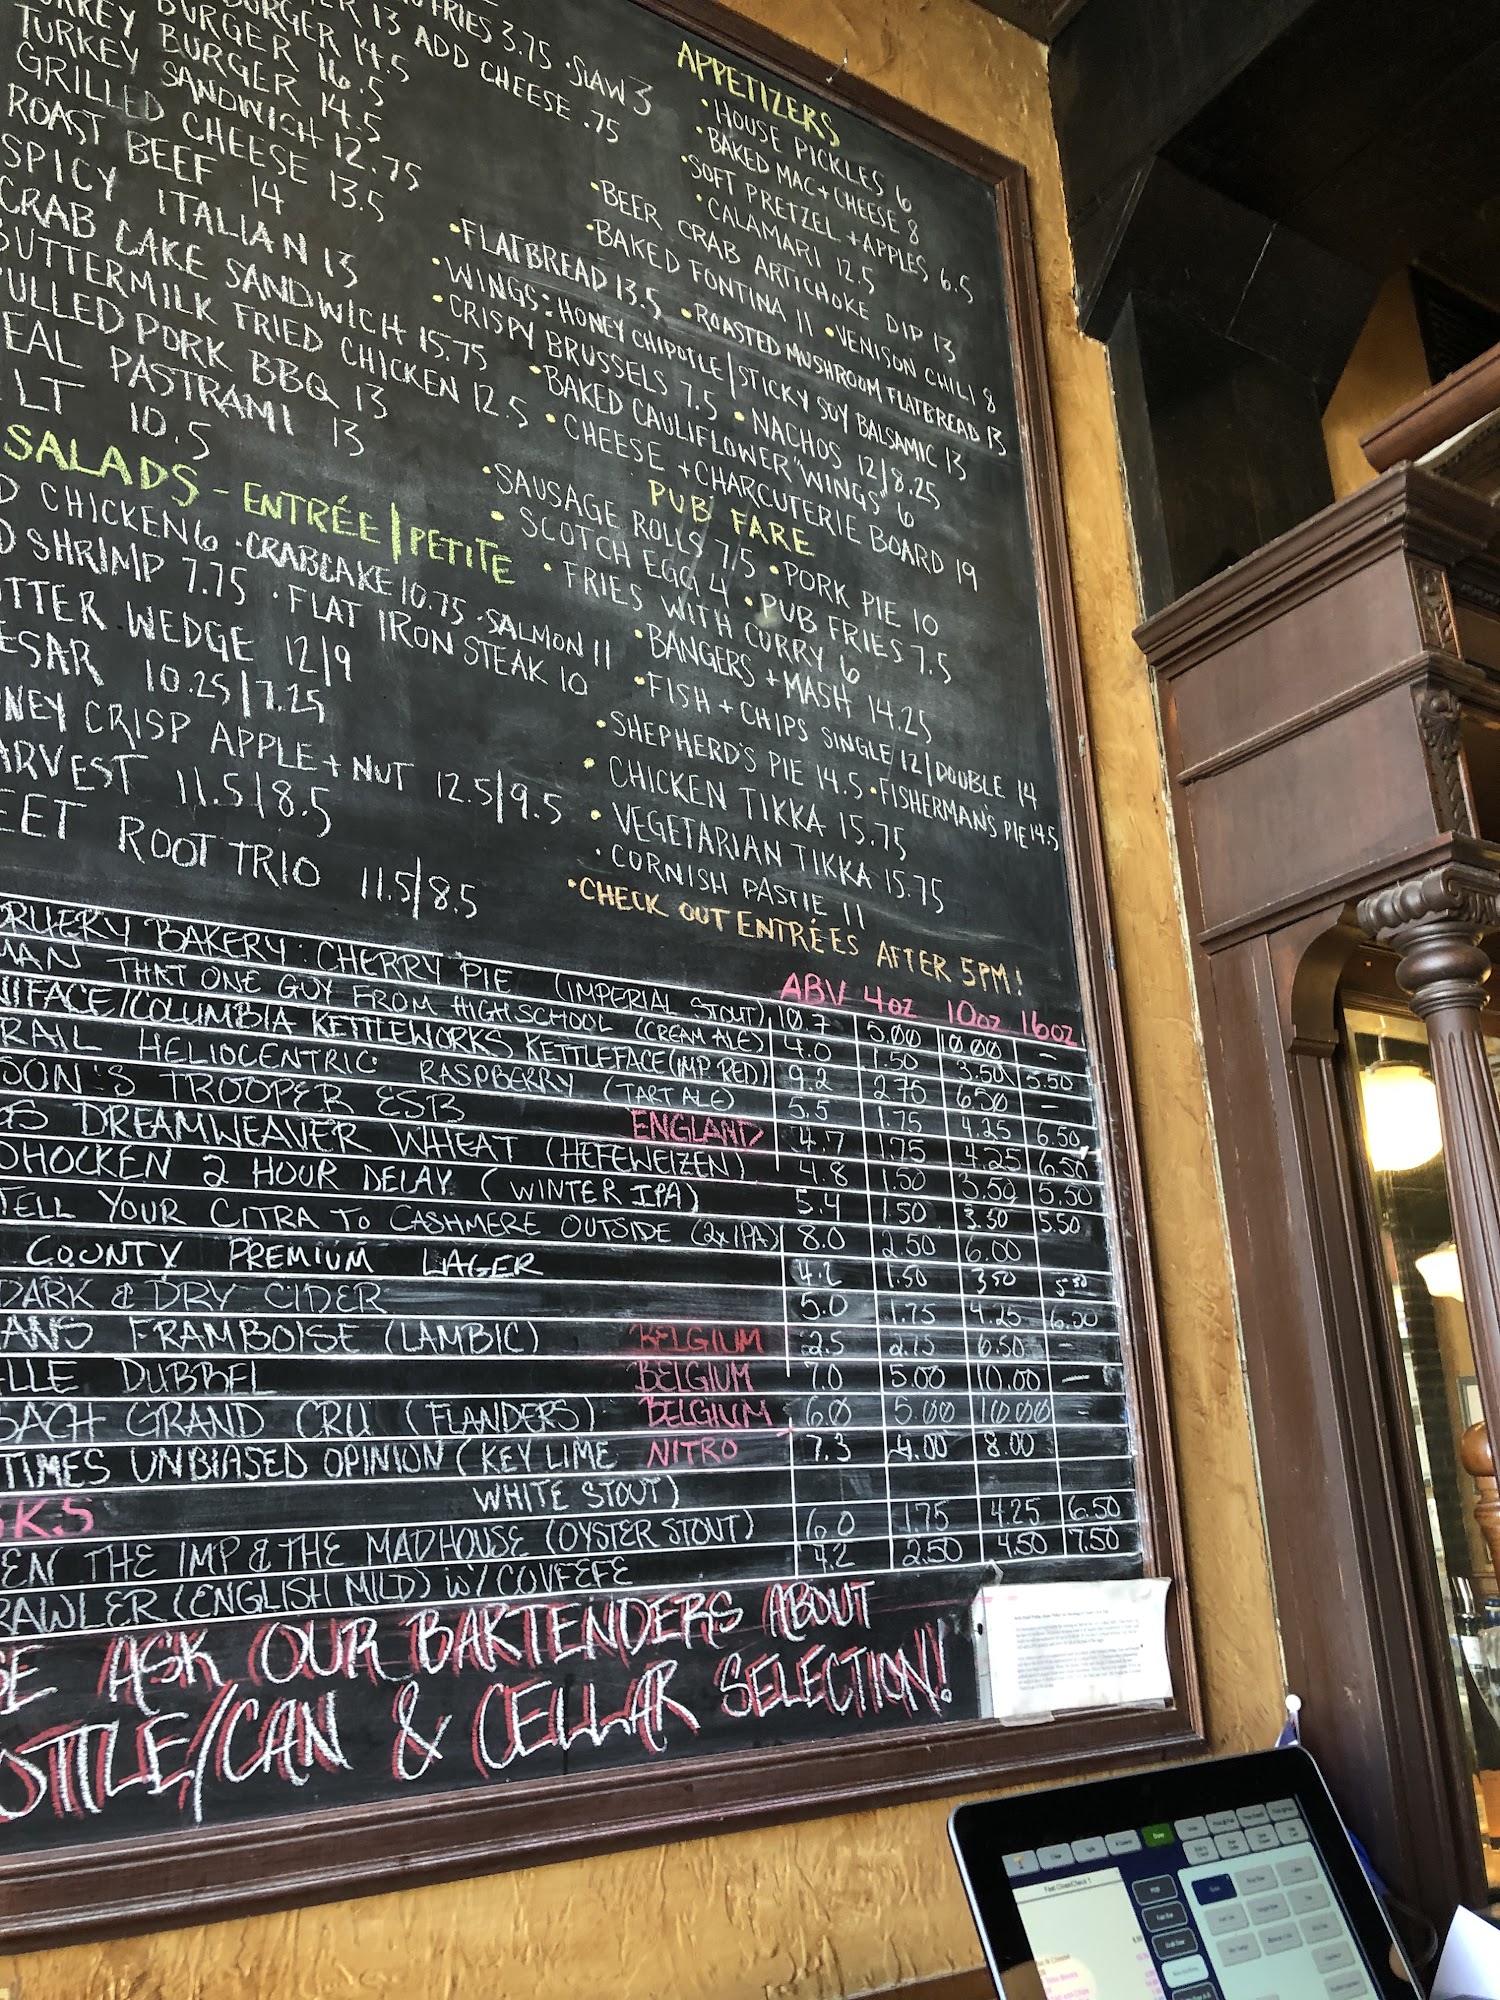 FRIES 3.75 · SLAW 3
BURGER 13 ADD CHEESE .75
BURGER 14.5
BURGER 16.5
TURKEY BURGER 14.5
TURKEY SANDWICH 12.75
GRILLED CHEESE 13.5
ROAST BEEF 14
SPICY ITALIAN 13
CRAB CAKE SANDWICH 15.75
BUTTERMILK FRIED CHICKEN 12.5
PULLED PORK BBQ 13
PASTRAMI 13
LT 10.5
SALADS - ENTRÉE | PETITE
CHICKEN 6 · CRABCAKE 10.75 · SALMON 11
SHRIMP 7.75 · FLAT IRON STEAK 10
WEDGE 12|9
ESAR 10.25|7.25
NEY CRISP APPLE + NUT 12.5|9.5
ARVEST 11.5|8.5
EET ROOT TRIO 11.5|8.5
APPETIZERS
· HOUSE PICKLES 6
· BAKED MAC + CHEESE 8
· SOFT PRETZEL + APPLES 6.5
· CALAMARI 12.5
· BEER CRAB ARTICHOKE DIP 13
· BAKED FONTINA 11 · VENISON CHILI 8
· FLATBREAD 13.5 · ROASTED MUSHROOM FLATBREAD 13
· WINGS: HONEY CHIPOTLE | STICKY SOY BALSAMIC 13
· CRISPY BRUSSELS 7.5 · NACHOS 12|8.25
· BAKED CAULIFLOWER "WINGS" 6
· CHEESE + CHARCUTERIE BOARD 19
PUB FARE
· SAUSAGE ROLLS 7.5 · PORK PIE 10
· SCOTCH EGG 4 · PUB FRIES 7.5
· FRIES WITH CURRY 6
· BANGERS + MASH 14.25
· FISH + CHIPS SINGLE 12 | DOUBLE 14
· SHEPHERD'S PIE 14.5 · FISHERMAN'S PIE 14.5
· CHICKEN TIKKA 15.75
· VEGETARIAN TIKKA 15.75
· CORNISH PASTIE 11
· CHECK OUT ENTRÉES AFTER 5PM!
ABV 4oz 10oz 16oz
BAKERY: CHERRY PIE (IMPERIAL STOUT) 10.7 5.00 10.00 -
MAN THAT ONE GUY FROM HIGH SCHOOL (CREAM ALE) 4.0 1.50 3.50 5.50
NIFACE/COLUMBIA KETTLEWORKS KETTLEFACE (IMP RED) 9.2 2.75 6.50 -
RAIL HELIOCENTRIC RASPBERRY (TART ALE) 5.5 1.75 4.25 6.50
SON'S TROOPER ESB ENGLAND 4.7 1.75 4.25 6.50
GS DREAMWEAVER WHEAT (HEFEWEIZEN) 4.8 1.50 3.50 5.50
OHOCKEN 2 HOUR DELAY (WINTER IPA) 5.4 1.50 3.50 5.50
TELL YOUR CITRA TO CASHMERE OUTSIDE (2x IPA) 8.0 2.50 6.00
COUNTY PREMIUM LAGER 4.2 1.50 3.50 5.50
DARK & DRY CIDER 5.0 1.75 4.25 6.50
ANS FRAMBOISE (LAMBIC) BELGIUM 2.5 2.75 6.50 -
ELLE DUBBEL BELGIUM 7.0 5.00 10.00 -
BACH GRAND CRU (FLANDERS) BELGIUM 6.0 5.00 10.00 -
TIMES UNBIASED OPINION (KEY LIME NITRO 7.3 4.00 8.00
WHITE STOUT)
KS
EN THE IMP & THE MADHOUSE (OYSTER STOUT) 6.0 1.75 4.25 6.50
RAWLER (ENGLISH MILD) w/ COVFEFE 4.2 2.50 4.50 7.50
SE ASK OUR BARTENDERS ABOUT
OTTLE/CAN & CELLAR SELECTION!